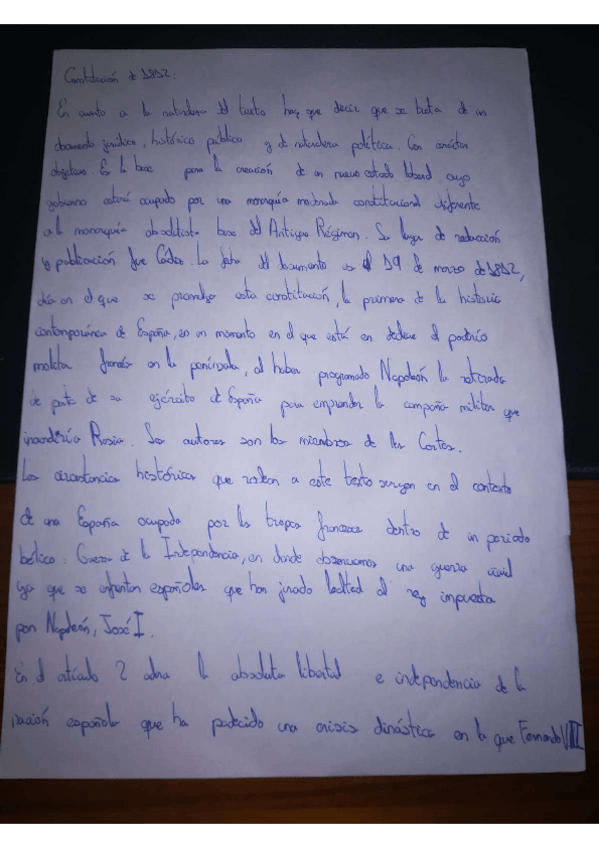 Constitución de 1812:
En cuanto a la naturaleza del texto hay que decir que se trata de un
documento jurídico, histórico público y de naturaleza política. Con carácter
objetivo. Es la base para la creación de un nuevo estado liberal cuyo
gobierno estará ocupado por una monarquía moderada constitucional diferente
a la monarquía absolutista base del Antiguo Régimen. Su lugar de redacción
y publicación fue Cádiz. La fecha del documento es el 19 de marzo de 1812,
día en el que se promulga esta constitución, la primera de la historia
contemporánea de España, en un momento en el que está en declive el poderío
militar francés en la península, al haber programado Napoleón la retirada
de parte de su ejército de España para emprender la campaña militar que
invadiría Rusia. Sus autores son los miembros de las Cortes.
Las circunstancias históricas que rodean a este texto surgen en el contexto
de una España ocupada por las tropas francesas dentro de un periodo
bélico: Guerra de la Independencia, en donde observamos una guerra civil
ya que se enfrentan españoles que han jurado lealtad al rey impuesto
por Napoleón, José I.
En el artículo 2 la absoluta libertad e independencia de la
nación española que ha padecido una crisis dinástica en la que Fernando VII